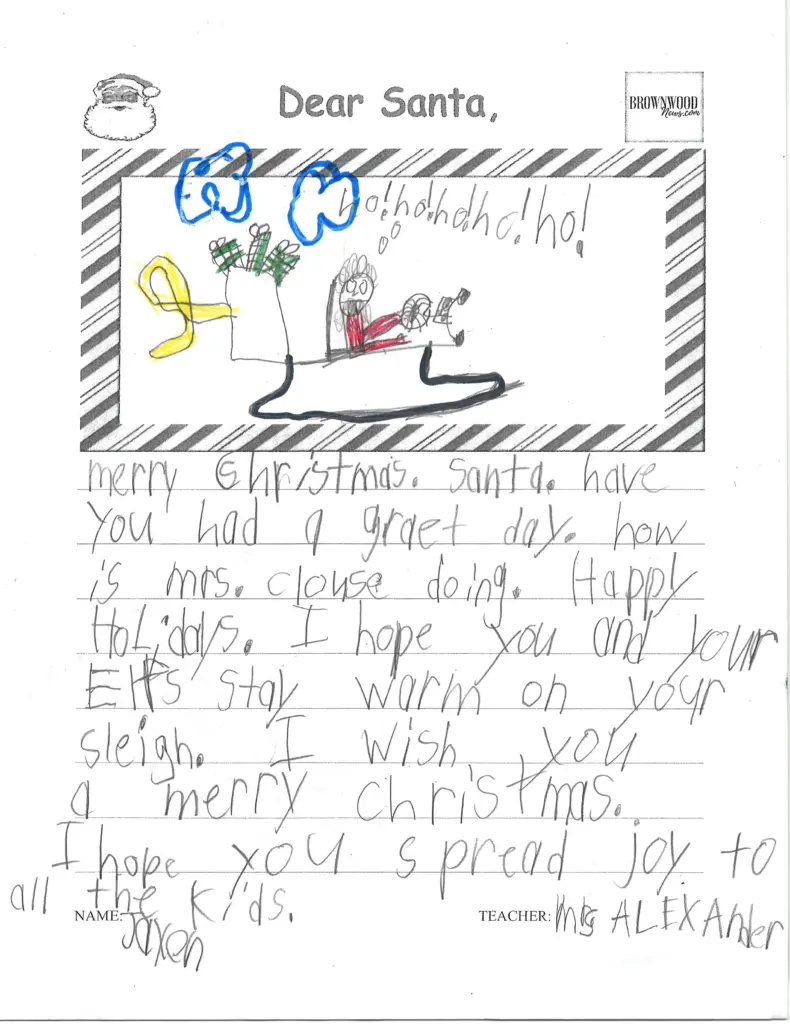 Dear Santa,
BROWNWOOD
News.com
ho! ho! ho! ho! ho!
merry Christmas. Santa. have
you had a graet day. how
is mrs. clouse doing. Happy
HoLidays. I hope you and your
Elfs stay warm on your
sleigh. I wish you
a merry christmas.
I hope you spread joy to
all the kids.
NAME: Jaxon
TEACHER: Mrs ALEXAnder